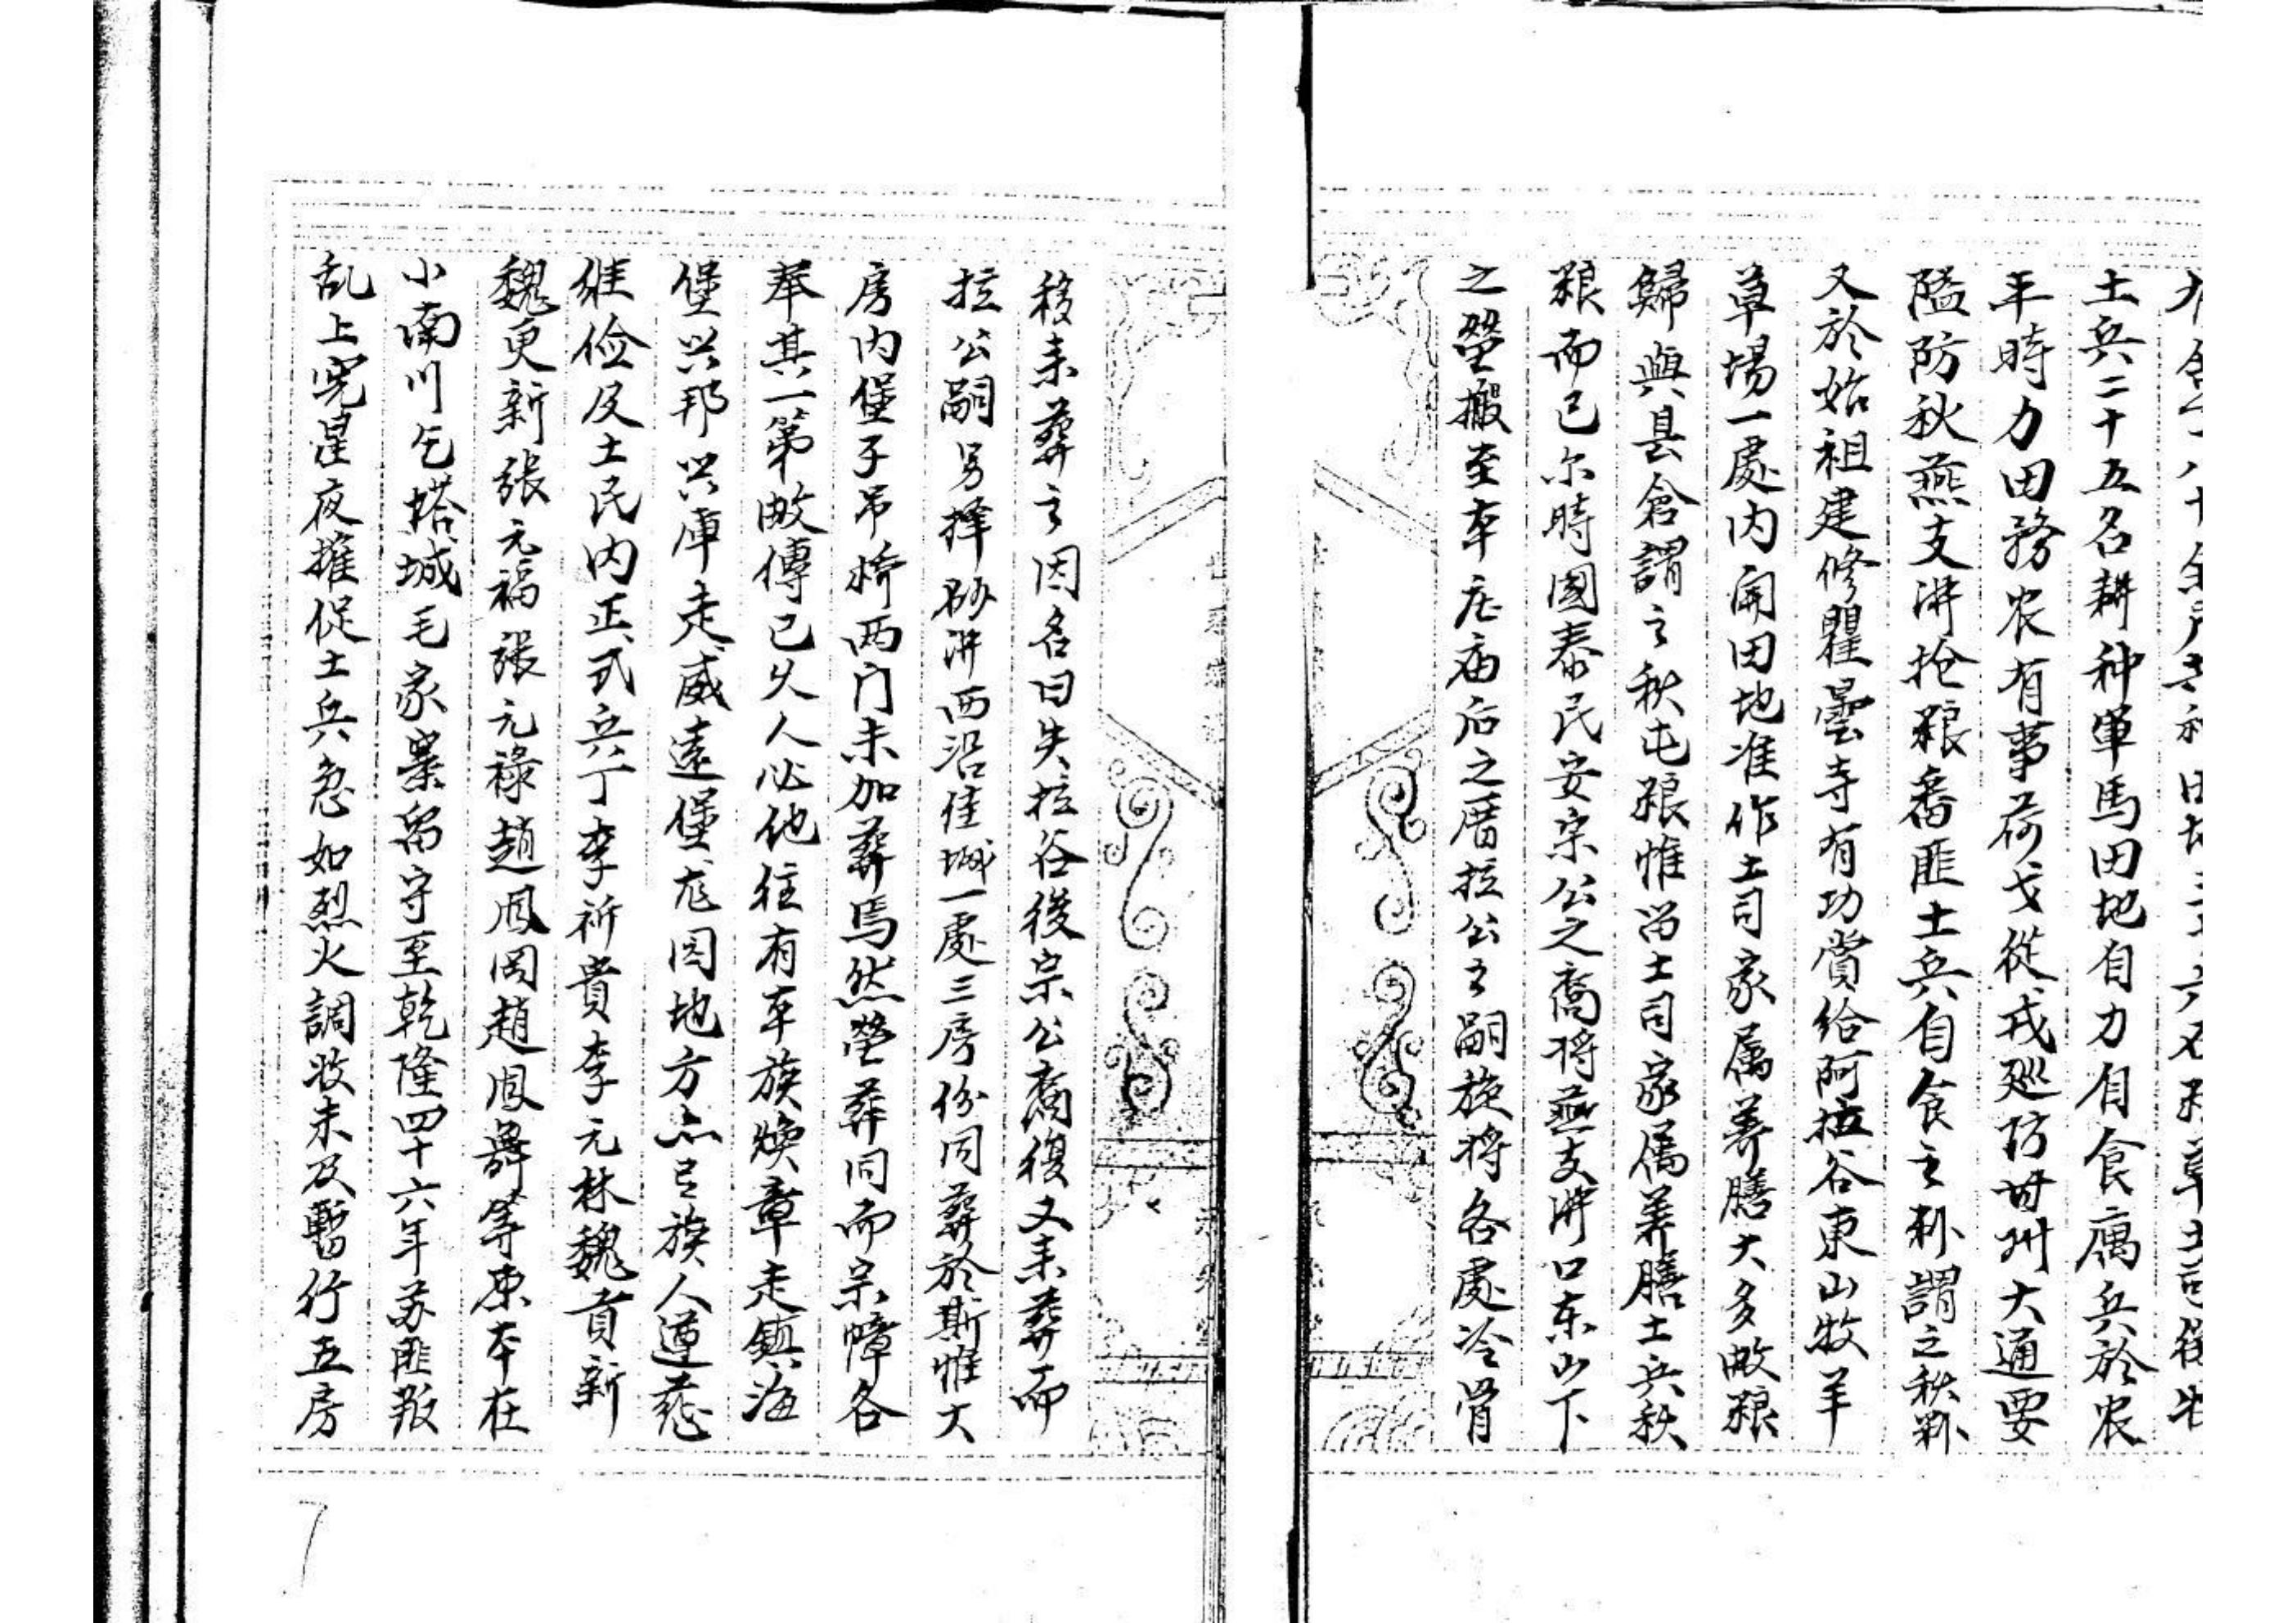 土兵二十五名耕种軍馬田地自力自食寓兵於农
平時力田務农有事荷戈從戎巡防甘州大通要
隘防秋燕支溝抢粮番匪土兵自食之料謂之秋料
又於始祖建修瞿曇寺有功賞给阿拉谷東山牧羊
草場一處内開田地准作土司家属养膳大多畝粮
歸與县倉謂之秋屯粮惟畄土司家属养膳土兵秋
粮而已尔時國泰民安宗公之裔将燕支溝口东山下
之塋搬至本庄庙后之厝拉公之嗣族将各處冷骨
移来葬之因名曰失拉谷後宗公裔復又来葬而
拉公嗣另择砂溝西沿佳城一處三房份同葬於斯惟大
房内堡子吊桥两门未加葬焉然塋葬同而宗幛各
奉其一第畝傳已久人必他往有本族焕章走鎮海
堡兴邦兴庫走威遠堡庄园地方亦有族人遵慈
继俭及土民内正式兵丁李祈貴李元林魏貢新
魏更新張元福張元禄趙凤岡趙凤舞等原本在
小南川乞塔城毛家寨畄守至乾隆四十六年苏匪叛
乱上宪星夜摧促土兵急如烈火調收未及暫行五房